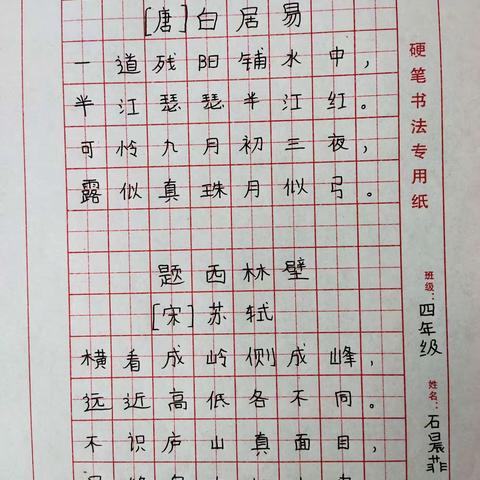 [唐]白居易
一道残阳铺水中,
半江瑟瑟半江红。
可怜九月初三夜,
露似真珠月似弓。
题西林壁
[宋]苏轼
横看成岭侧成峰,
远近高低各不同。
不识庐山真面目,
硬笔书法专用纸
班级:四年级
姓名:石晨菲